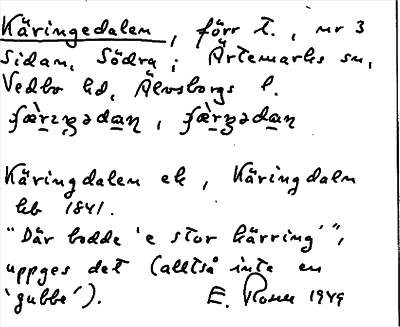 Käringedalen, förr t., nr 3
Sidan, Södra; Ärtemarks sn,
Vedbo hd, Älvsborgs l.
Käringdalen ek, Käringdaln
hb 1841.
"Där bodde 'e stor kärring'",
uppges det (alltså inte en
'gubbe'). E. Rosell 1949